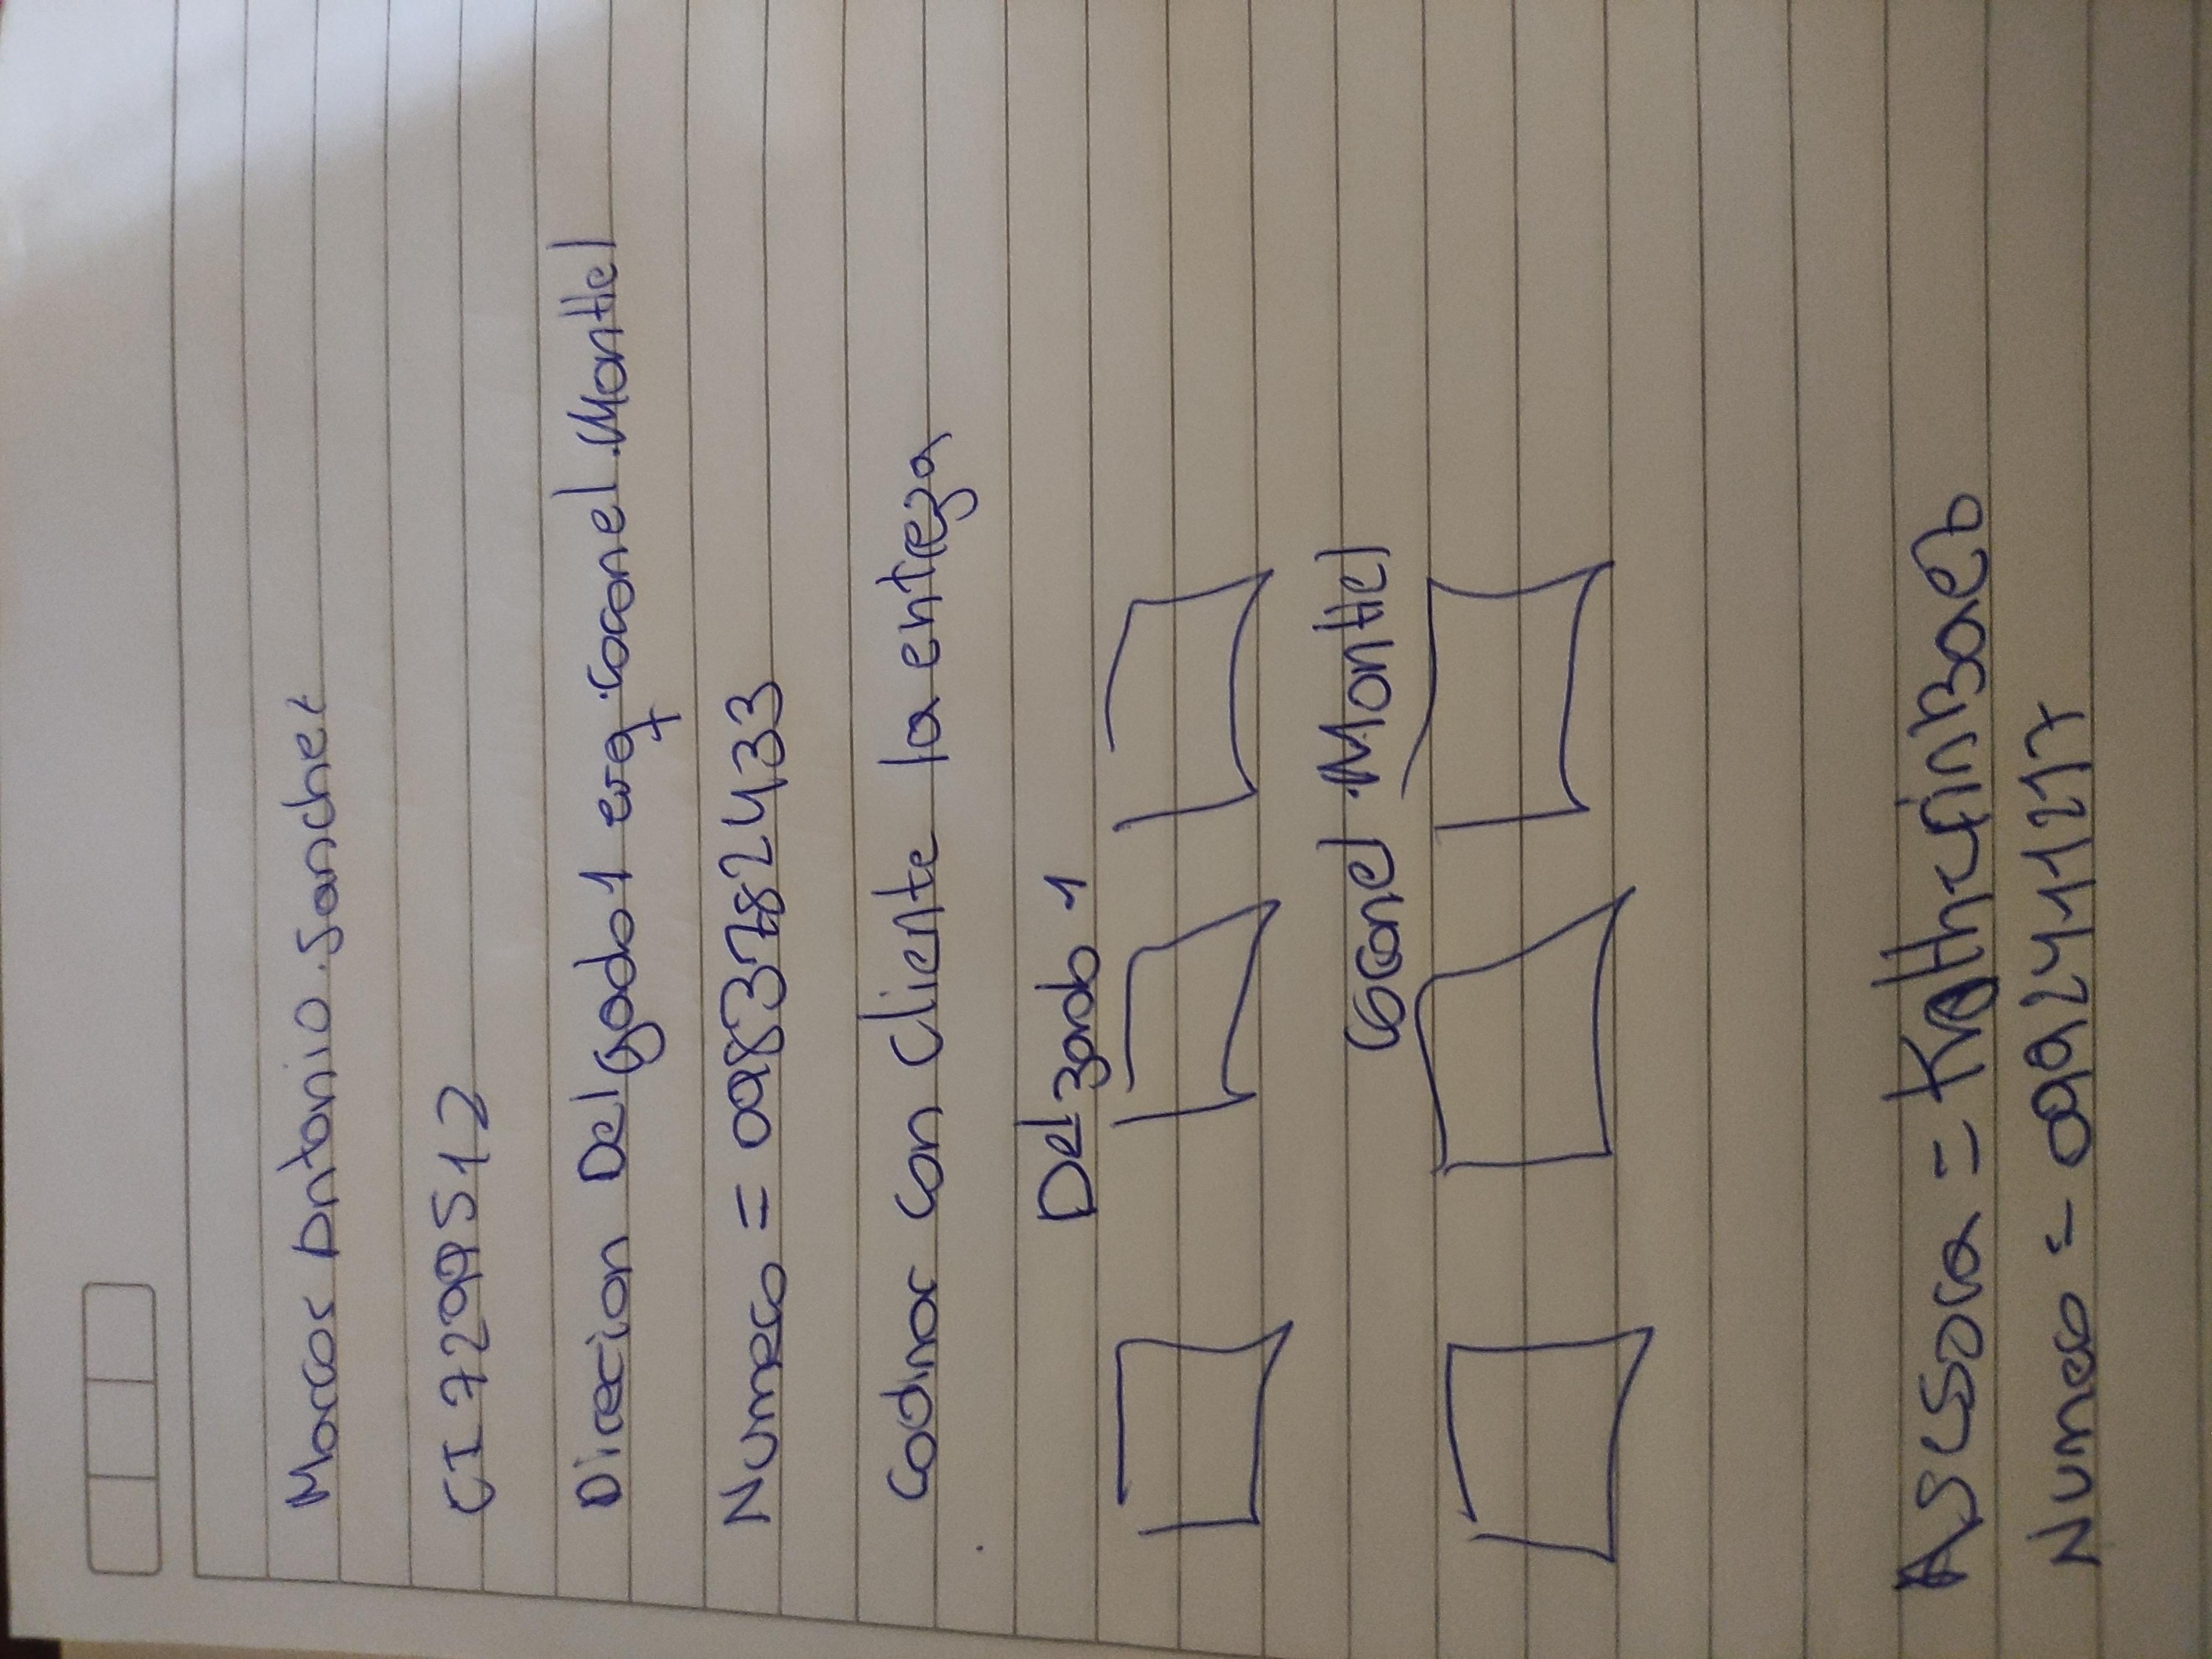 Marcos Antonio Sanchez
CI 7299512
Direcion Delgado 1 esq. Coronel Montiel
Numero = 0983782433
Codinar con Cliente la entrega
Delgado 1
Coronel Montiel
Asesora = Katherin Baez
Numero = 0992411217